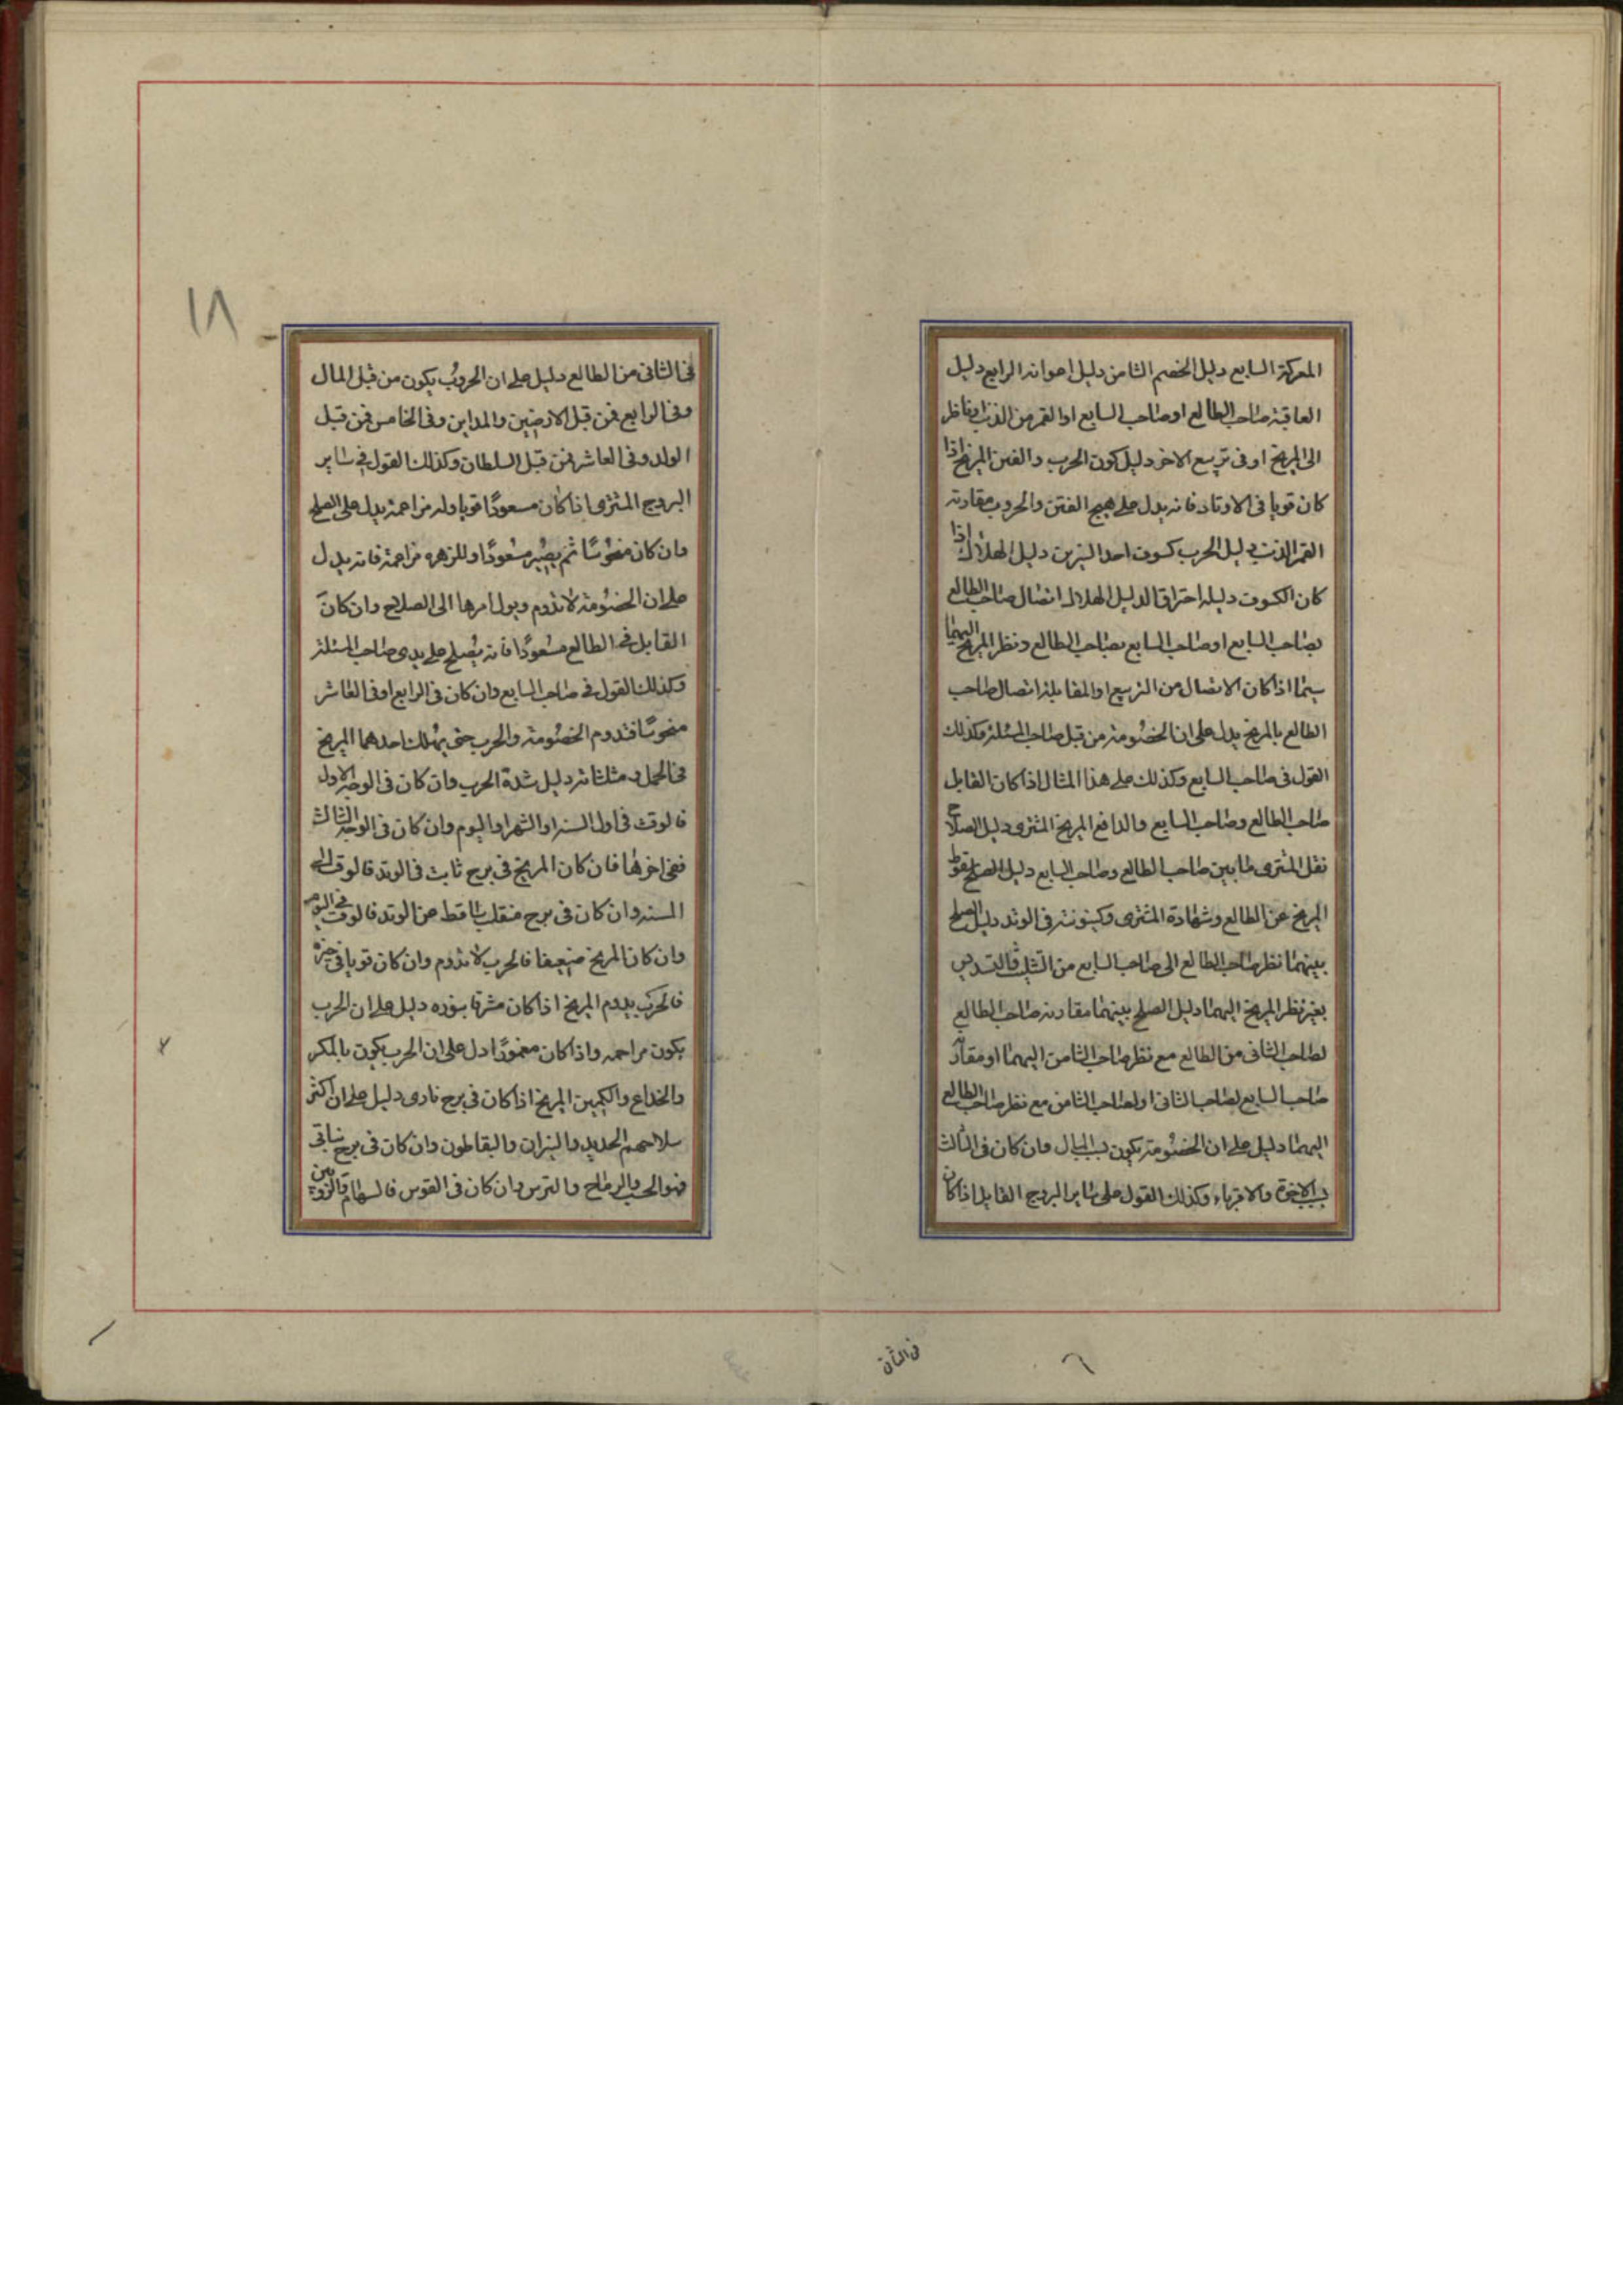 المعركة السابع دليل الخصم الثامن دليل اعوانه الرابع دليل
العاقبة صاحب الطالع او صاحب السابع او القمر من الذنب او ناظر
الى المريخ او فى تربيع الاخر دليل كون الحرب والفتن المريخ اذا
كان قويا فى الاوتاد فانه يدل على هيج الفتن والحروب مقارنه
القمر الذنب دليل الحرب كسوف احد النيرين دليل الهلاك اذا
كان الكسوف دليله احتراق الدليل الهلاك اتصال صاحب الطالع
بصاحب السابع او صاحب السابع بصاحب الطالع ونظر المريخ اليهما
سيما اذا كان الاتصال من التربيع او المقابلة اتصال صاحب
الطالع بالمريخ يدل على ان الخصومة من قبل صاحب المسئلة وكذلك
القول فى صاحب السابع وكذلك على هذا المثال اذا كان القابل
صاحب الطالع وصاحب السابع والدافع المريخ المشترى دليل الصلاح
نقل المشترى ما بين صاحب الطالع وصاحب السابع دليل الصلح سقوط
المريخ عن الطالع وشهادة المشترى وكينونته فى الوتد دليل الصلح
بينهما نظر صاحب الطالع الى صاحب السابع من التثليث والتسديس
بغير نظر المريخ اليهما دليل الصلح بينهما مقارنه صاحب الطالع
لصاحب الثانى من الطالع مع نظر صاحب الثامن اليهما او مقارنة
صاحب السابع لصاحب الثانى او لصاحب الثامن مع نظر صاحب الطالع
اليهما دليل على ان الخصومة يكون بسبب المال وان كان فى الثالث
بسبب الاخوة والاقرباء وكذلك القول على ساير البروج القابل اذا كان
فى الثانى
فى الثانى من الطالع دليل على ان الحروب يكون من قبل المال
وفى الرابع فمن قبل الارضين والمداين وفى الخامس فمن قبل
الولد وفى العاشر فمن قبل السلطان وكذلك القول فى ساير
البروج المشترى اذا كان مسعودًا قويا وله مزاحمة يدل على الصلح
وان كان منحوسًا ثم يصير مسعودًا وللزهره مزاحمة فانه يدل
على ان الخصومة لا تدوم ويول امرها الى الصلاح وان كان
القابل فى الطالع مسعودًا فانه يصلح على يدى صاحب المسئلة
وكذلك القول فى صاحب السابع وان كان فى الرابع او فى العاشر
منحوسًا فتدوم الخصومة والحرب حتى يهلك احدهما المريخ
فى الحمل ومثلثاته دليل شدة الحرب وان كان فى الوجه الاول
فالوقت فى اول السنة او الشهر او اليوم وان كان فى الوجه الثالث
ففى اخرها فان كان المريخ فى برج ثابت فى الوتد فالوقت الى
السنه وان كان فى برج منقلب ساقط عن الوتد فالوقت فى اليوم
وان كان المريخ ضعيفا فالحرب لا تدوم وان كان قويا فى حيزه
فالحرب يدوم المريخ اذا كان مشرقا بنوره دليل على ان الحرب
يكون مزاحمه واذا كان مغمودًا دل على ان الحرب يكون بالمكر
والخداع والكمين المريخ اذا كان فى برج نارى دليل على ان اكثر
سلاحهم الحديد والنيران وان كان فى برج نباتى
فهو الخشب والرماح والترس وان كان فى القوس فالسهام والزوبين
١٨